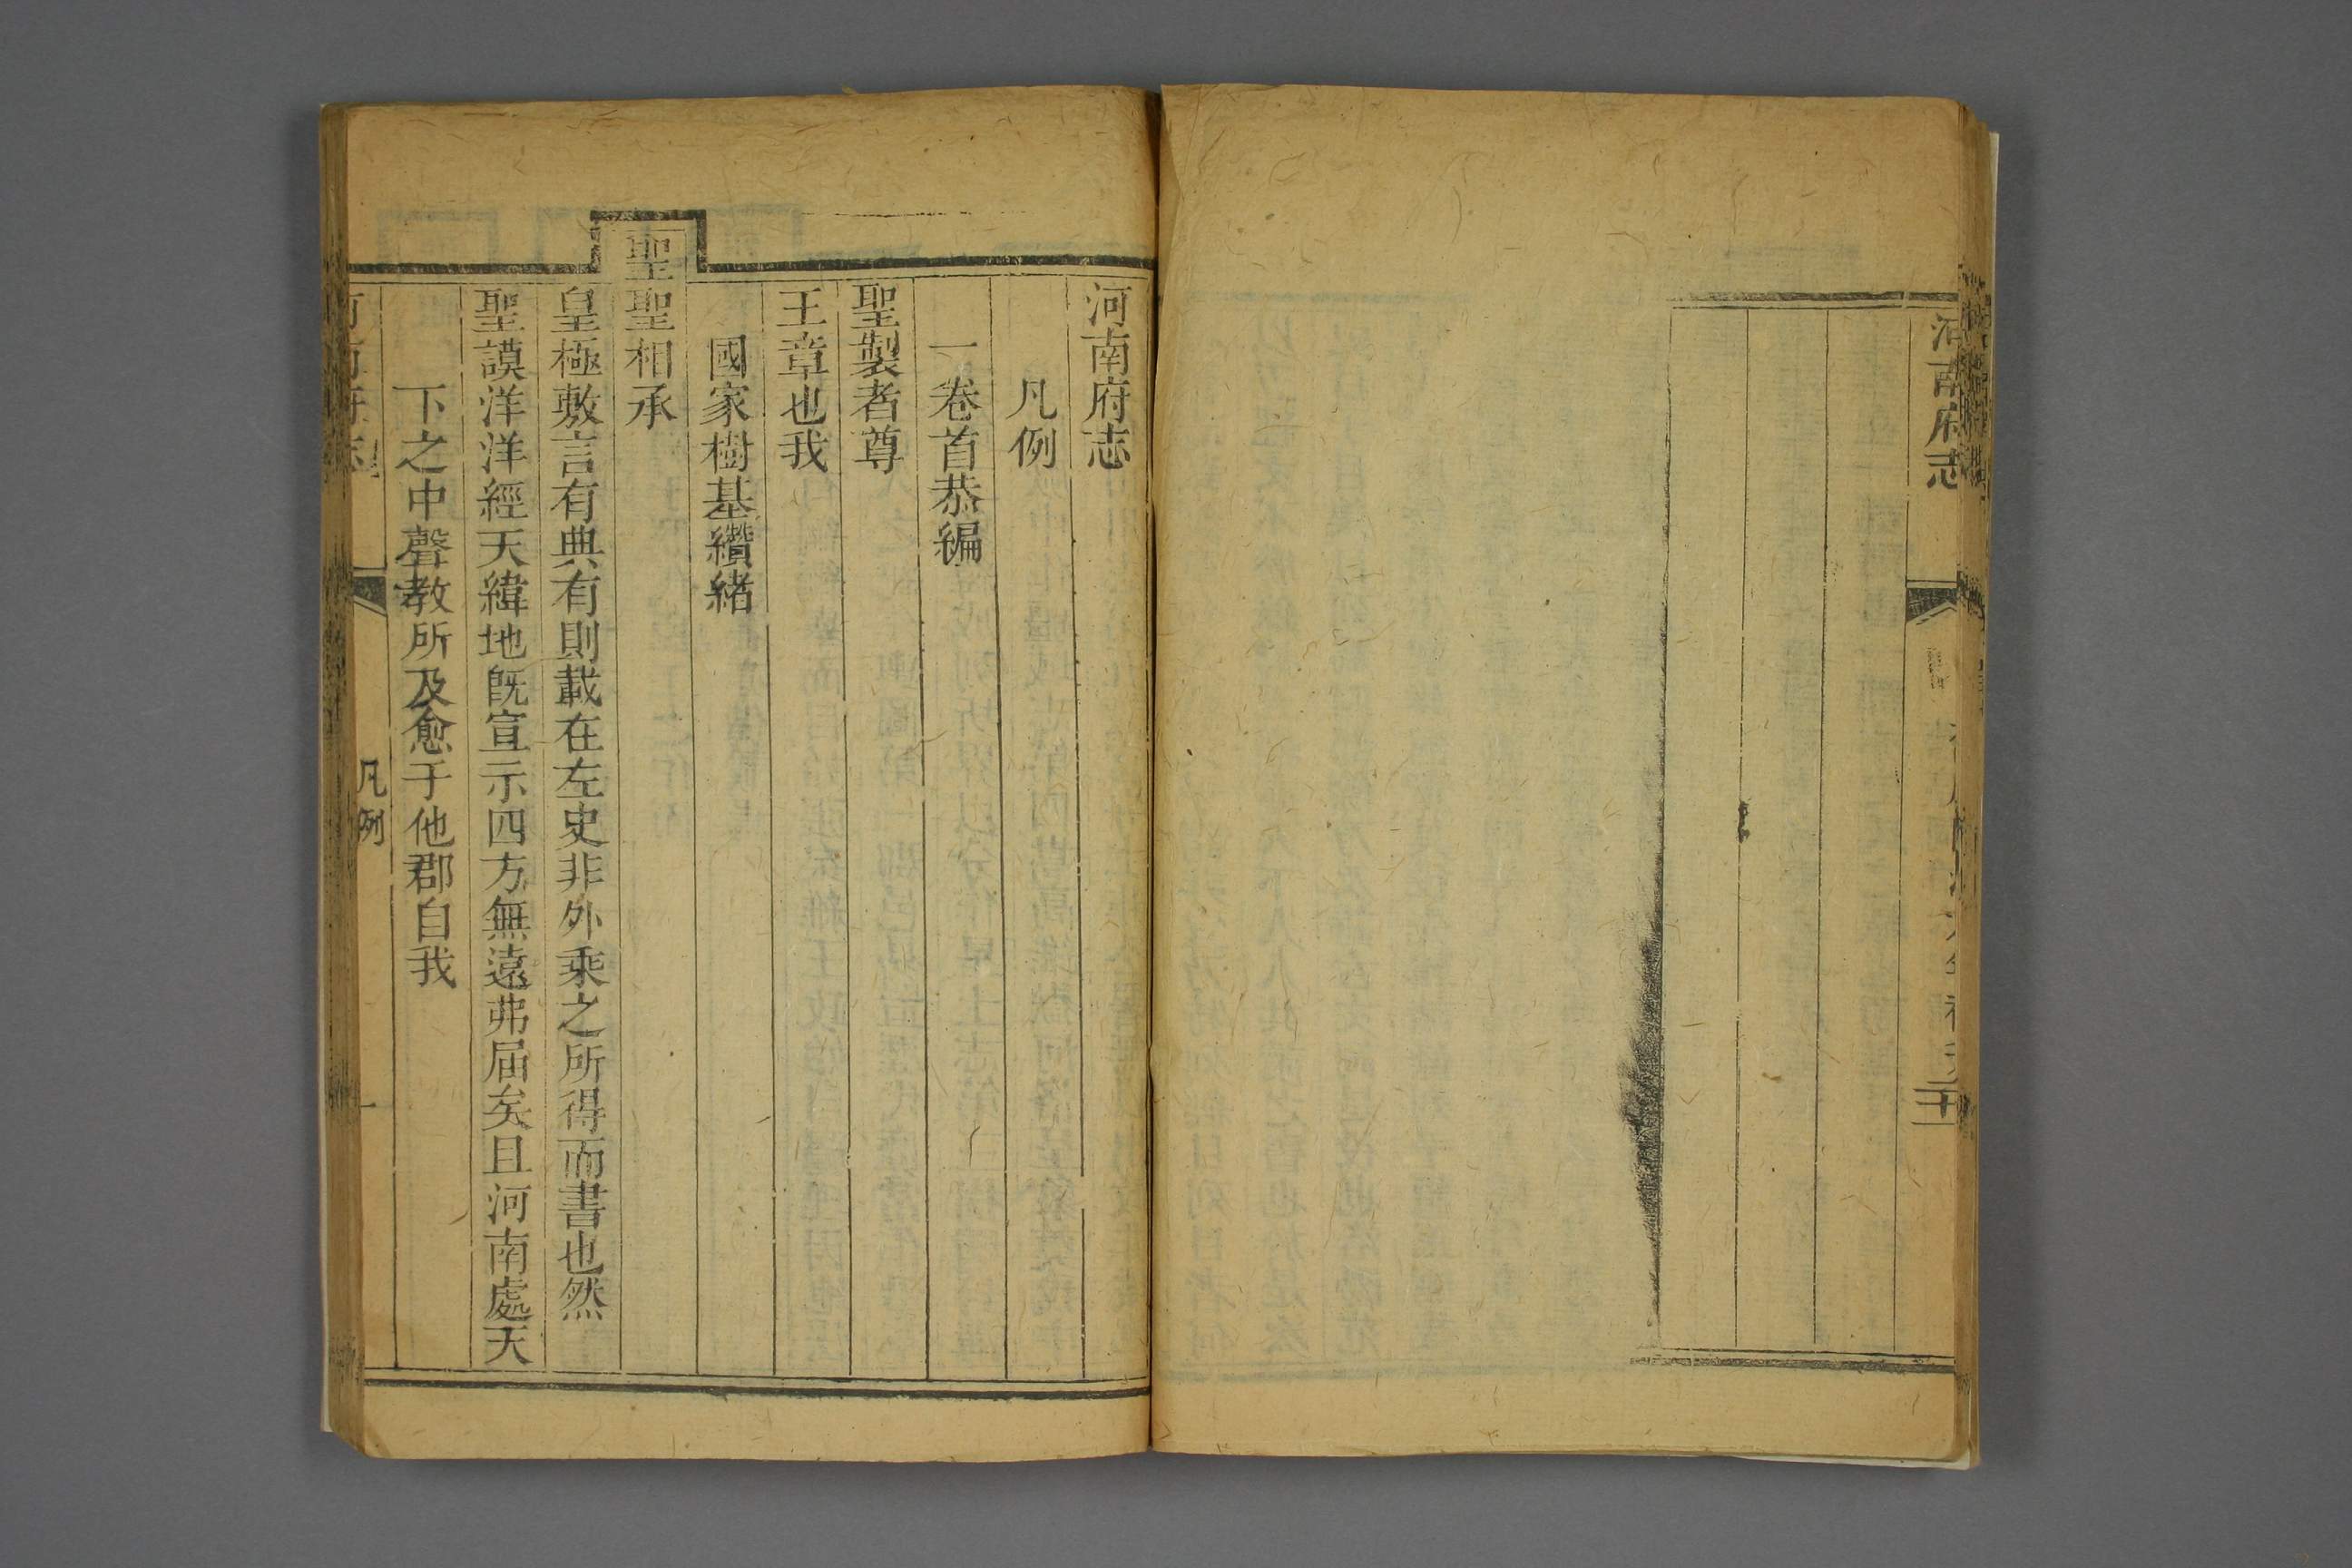 河南府志
河南府志
凡例
一卷首恭編
聖製者尊
王章也我
國家樹基纘緒
聖聖相承
皇極敷言有典有則載在左史非外乘之所得而書也然
聖謨洋洋經天緯地既宣示四方無遠弗届矣且河南處天
下之中聲教所及愈于他郡自我
凡例
一